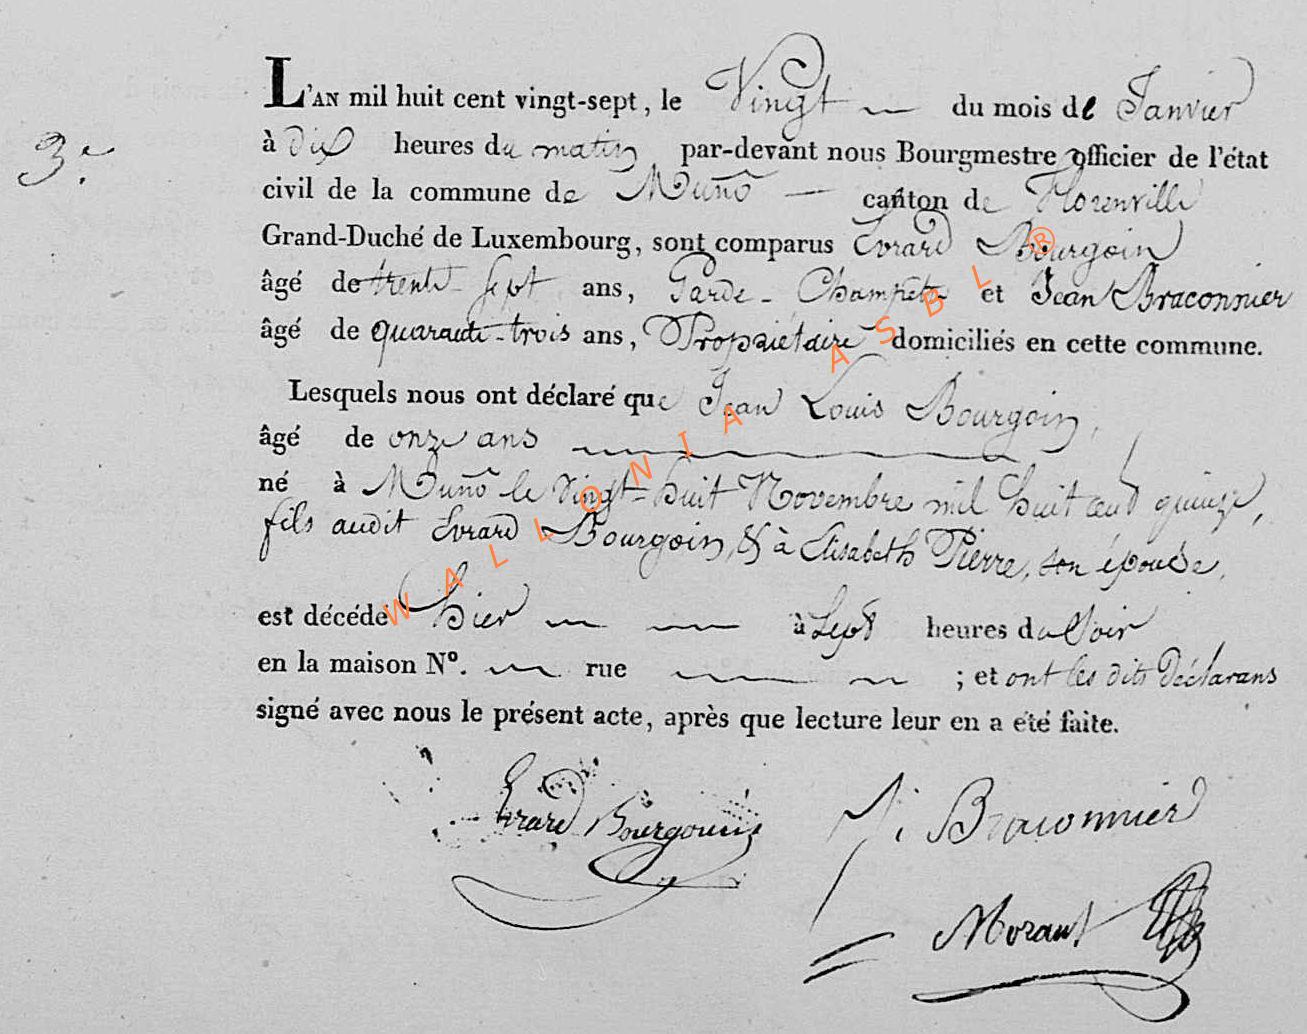 L'AN mil huit cent vingt-sept, le Vingt du mois de Janvier
3e.
à dix heures du matin par-devant nous Bourgmestre officier de l'état
civil de la commune de Muno canton de Florenville
Grand-Duché de Luxembourg, sont comparus Evrard Bourgoin
âgé de trente-sept ans, Garde-Champêtre et Jean Braconnier
âgé de quarante-trois ans, Propriétaire domiciliés en cette commune.
Lesquels nous ont déclaré que Jean Louis Bourgoin,
âgé de onze ans
né à Muno le vingt-huit Novembre mil huit cent quinze,
fils audit Evrard Bourgoin, & à Elisabeth Pierre, son épouse,
est décédé hier à Sept heures du Soir
en la maison N°. rue ; et ont les dits Déclarans
signé avec nous le présent acte, après que lecture leur en a été faite.
Evrard Bourgouin
J. Braconnier
Morant
WALLONIA ASBL ®